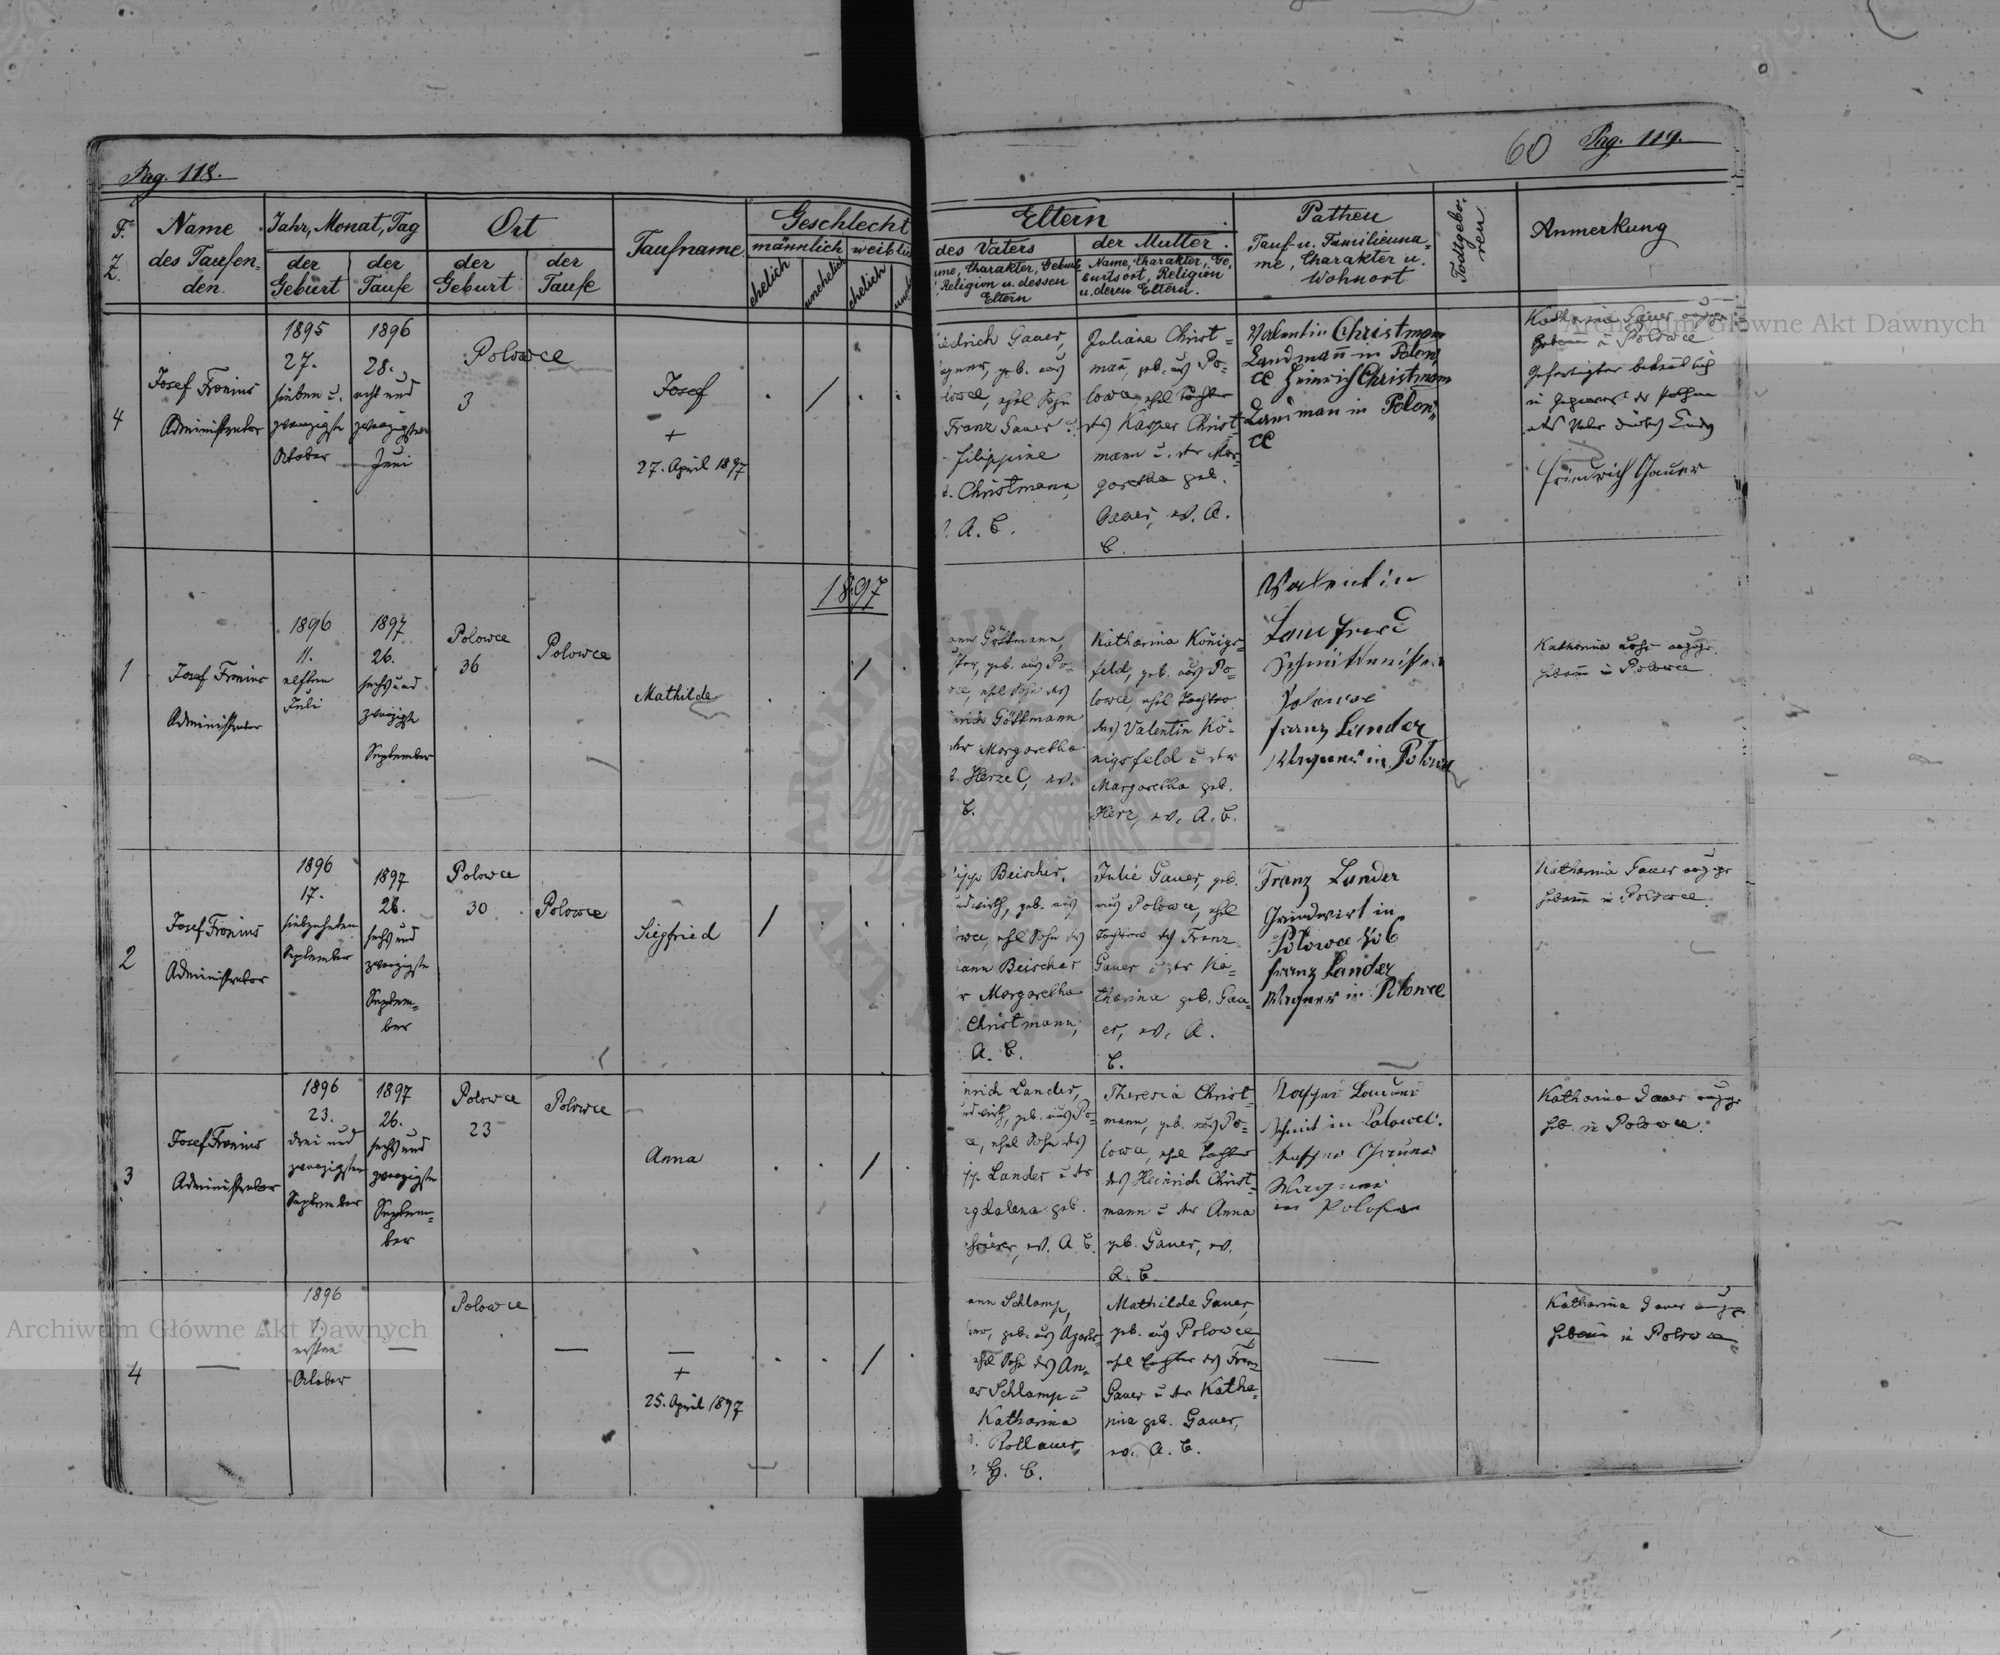 Pag. 118.
60 Pag. 119.
F.
Z.
Name
des Taufen-
den.
Jahr, Monat, Tag
der
Geburt
der
Taufe
Ort
der
Geburt
der
Taufe
Taufname
Geschlecht
männlich
ehelich
unehelich
weiblic
ehelich
Eltern
des Vaters
ame, Charakter, Geburt
Religion u. dessen
Eltern
der Mutter.
Name, Charakter, Ge-
burtsort, Religion
u. deren Eltern.
Pathen
Tauf- u. Familienna-
me, Charakter u.
Wohnort
Todtgebo-
ren
Anmerkung
4
Josef Fronius
Administrator
1895
27.
sieben u.
zwanzigste
Oktober
1896
28.
acht und
zwanzigsten
Juni
Polowce
3
Josef
+
27. April 1897
iedrich Gauer,
geb. aus
lowce, ehel Sohn
Franz Gauer u.
Filippine
Christmann,
A. C.
Juliane Christ-
mann, geb. aus Po-
lowce, ehel Tochter
des Kasper Christ-
mann u. der Mar-
garetha geb.
Gauer, ev. A.
C.
Valentin Christman
Landmann in Polow
ce Heinrich Christmann
Landman in Polow-
ce
Katharina Gauer
Hebamme in Polowce
Friedrich Gauer
1897
1
Josef Fronius
Administrator
1896
11.
elften
Juli
1897
26.
sechs und
zwanzigste
September
Polowce
36
Polowce
Mathilde
ann Göttmann,
geb. aus Po-
ce, ehel Sohn des
inrich Göttmann
der Margaretha
Herzel, ev.
C.
Katharina Königs-
feld, geb. aus Po-
lowce, ehel Tochter
des Valentin Kö-
nigsfeld u der
Margaretha geb.
Herz, ev. A. C.
Valentin
Polowce
Franz Lander
Wagner in Polowce
Katharina
Hebamme in Polowce
2
Josef Fronius
Administrator
1896
17.
siebzehnten
September
1897
26.
sechs und
zwanzigste
Septem-
ber
Polowce
30
Polowce
Siegfried
ipp Beischer,
ndwirth, geb. aus
wce, ehel Sohn des
ann Beischer
r Margaretha
Christmann,
A. C.
Julie Gauer, geb.
aus Polowce, ehel
Tochter des Franz
Gauer u der Ka-
tharina geb. Gau-
er, ev. A.
C.
Franz Lander
Grundwirt in
Polowce No 6
Franz Lander
Wagner in Polowce
Katharina Gauer
Hebamme in Polowce
3
Josef Fronius
Administrator
1896
23.
drei und
zwanzigsten
September
1897
26.
sechs und
zwanzigste
Septem-
ber
Polowce
23
Polowce
Anna
inrich Lander,
ndwirth, geb. aus Po-
ce, ehel Sohn des
ipp Lander u der
agdalena geb.
ev. A. C.
Theresia Christ-
mann, geb. aus Po-
lowce, ehel Tochter
des Heinrich Christ-
mann u der Anna
geb. Gauer, ev.
A. C.
Schmit in Polowce.
Wagner
in
Katharina Gauer
Heb. in Polowce.
4
—
1896
1.
ersten
Oktober
—
Polowce
—
—
+
25. April 1897
ann Schlamp,
geb. aus
ehel Sohn des An-
as Schlamp u
Katharina
Rollauer,
H. C.
Mathilde Gauer,
geb. aus Polowce,
ehel Tochter des Franz
Gauer u der Katha-
rina geb. Gauer,
ev. A. C.
—
Katharina Gauer
Hebamme in Polowce
Archiwum Główne Akt Dawnych
Archiwum Główne Akt Dawnych